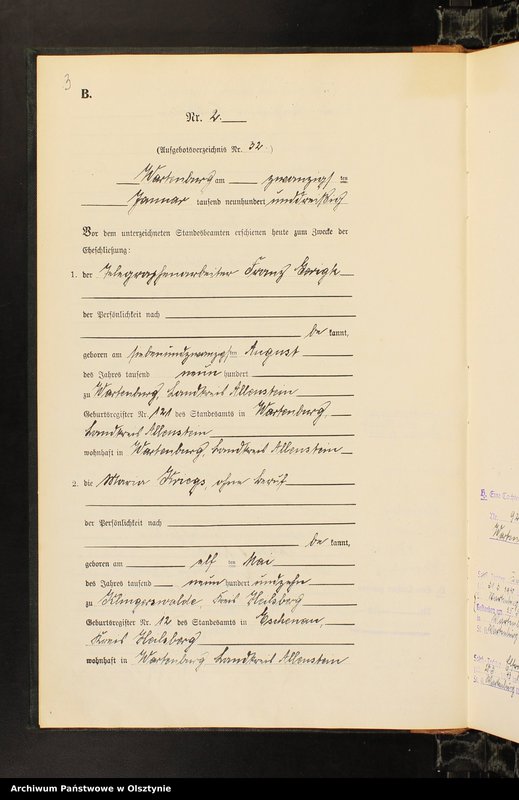 3
B.
Nr. 2.
(Aufgebotsverzeichnis Nr. 32.)
Wartenburg am zwanzigsten
Januar tausend neunhundert unddreißig
Vor dem unterzeichneten Standesbeamten erschienen heute zum Zwecke der
Eheschließung:
1. der Telegraphenarbeiter Franz
der Persönlichkeit nach
be kannt,
geboren am siebenundzwanzigsten August
des Jahres tausend neun hundert
zu Wartenburg, Landkreis Allenstein
Geburtsregister Nr. 121 des Standesamts in Wartenburg,
Landkreis Allenstein
wohnhaft in Wartenburg, Landkreis Allenstein
2. die Maria Kriegs, ohne Beruf
der Persönlichkeit nach
be kannt,
geboren am elf ten Mai
des Jahres tausend neun hundert undzehn
zu Klingerswalde, Kreis Heilsberg
Geburtsregister Nr. 12 des Standesamts in Eschenau,
Kreis Heilsberg
wohnhaft in Wartenburg Landkreis Allenstein
Archiwum Państwowe w Olsztynie